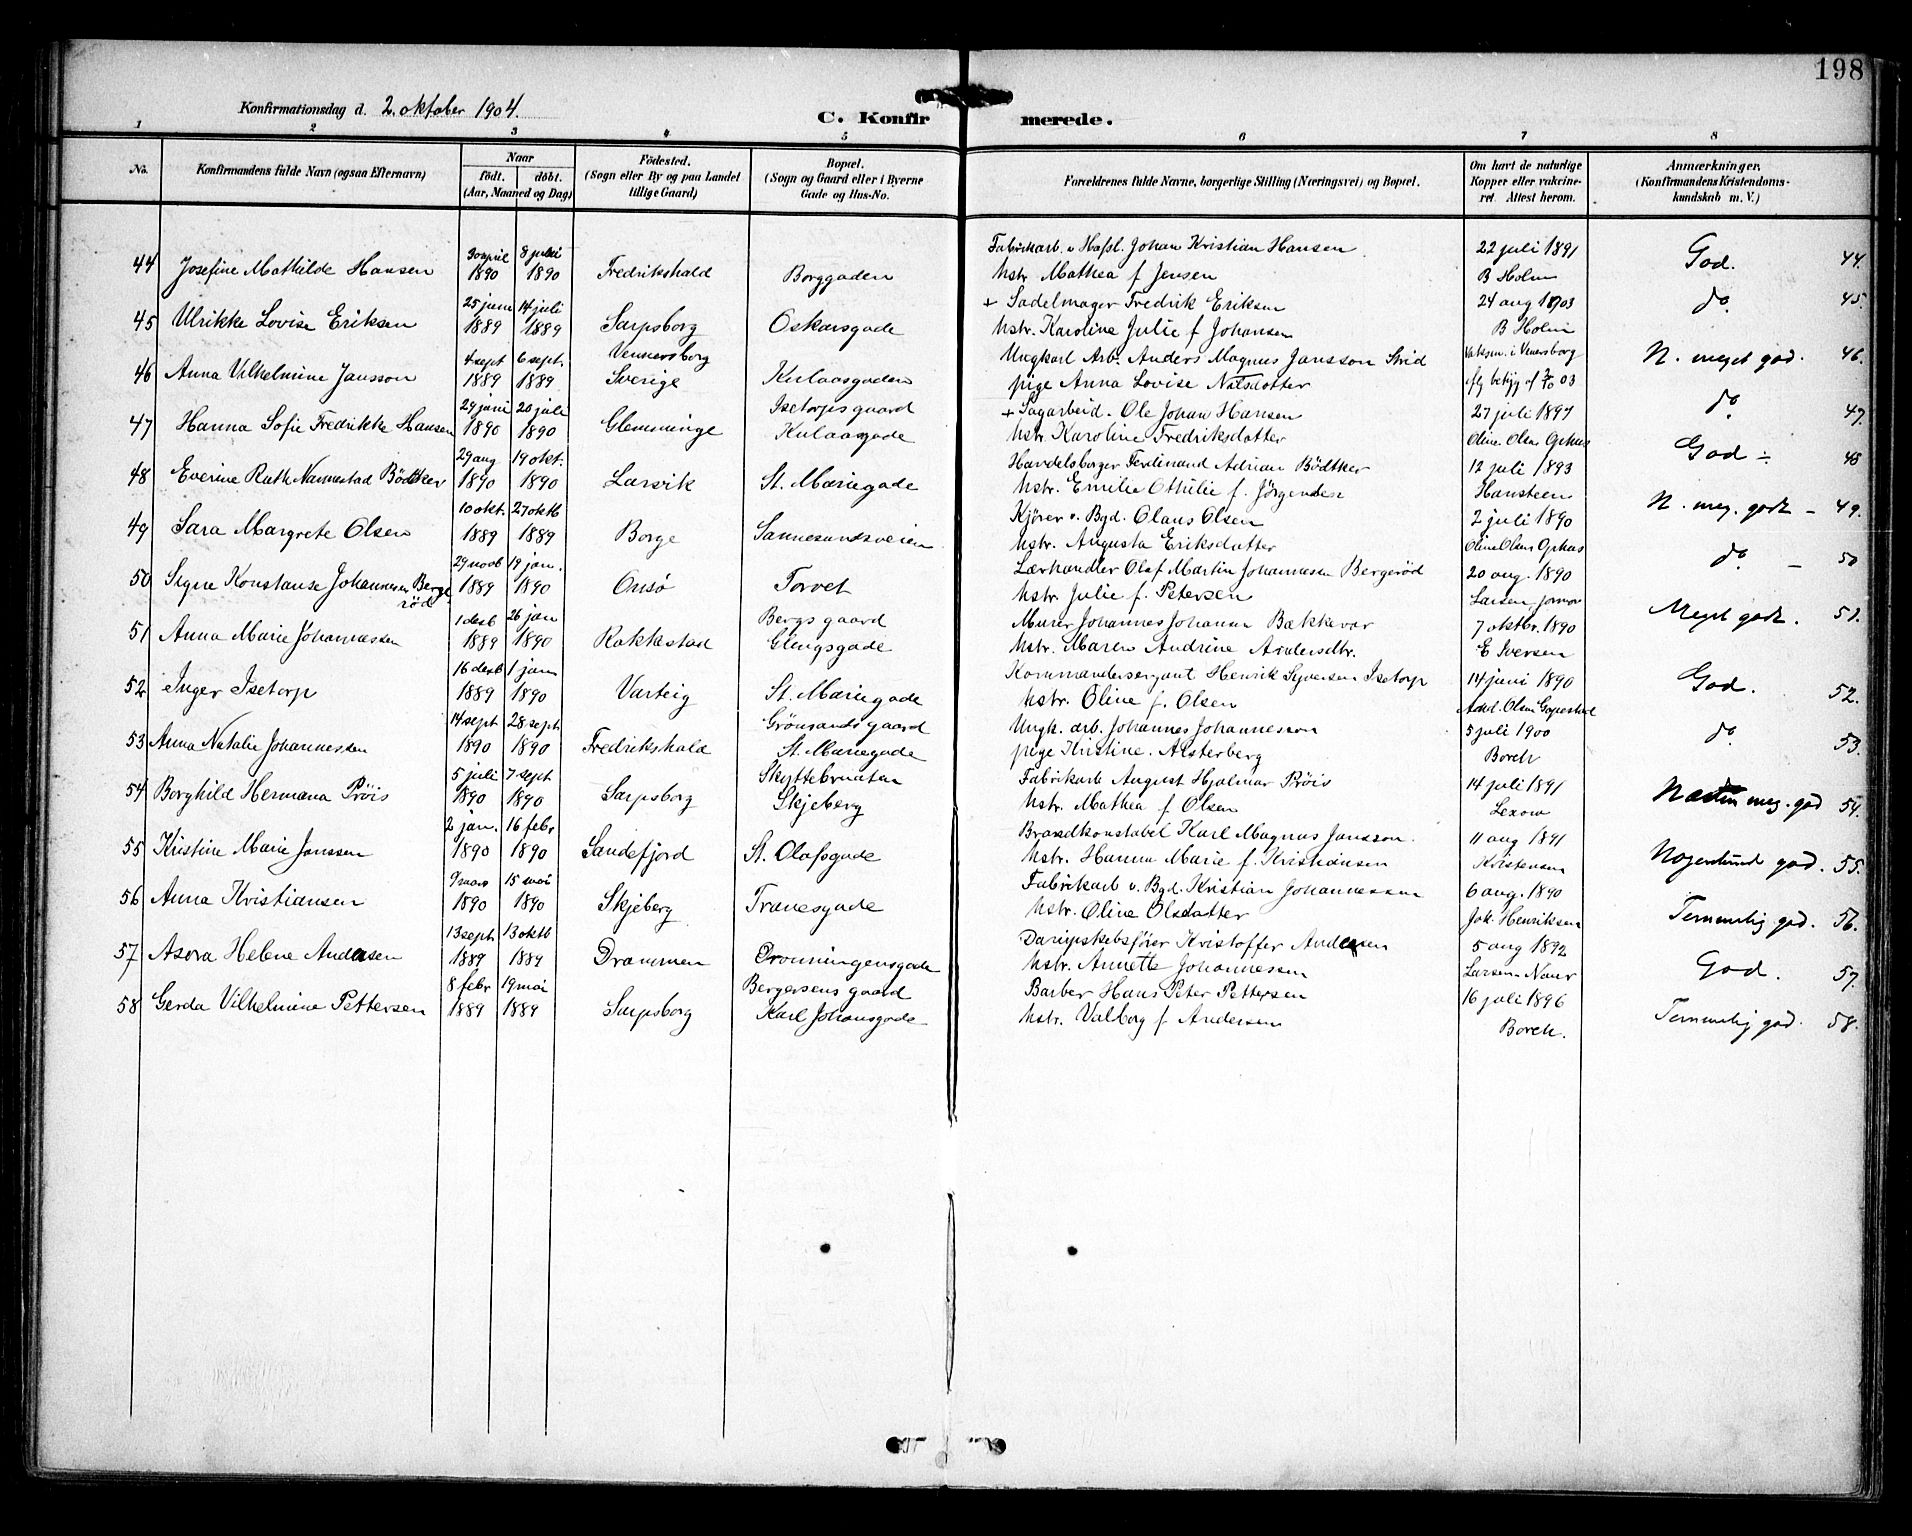 198
Konfirmationsdag d. 2. oktober 1904.
C. Konfirmerede.
1 2 3 4 5 6 7 8
No. Konfirmandens fulde Navn (ogsaa Efternavn) Naar født. døbt. (Aar, Maaned og Dag) Fødested. (Sogn eller By og paa Landet tillige Gaard) Bopæl. (Sogn og Gaard eller i Byerne Gade og Hus-No. Forældrenes fulde Navne, borgerlige Stilling (Næringsvei) og Bopæl. Om havt de naturlige Kopper eller vakcineret. Attest herom. Anmærkninger, (Konfirmandens Kristendomskundskab m. V.)
30 april 8 juli Fabrikarb. v. Hafsl. Johan Kristian Hansen 22 juli 1891
44 Josefine Mathilde Hansen 1890 1890 Fredrikshald Borggaden Hstr. Mathea f. Jensen B Holm God. 44.
25 juni 14 juli + Sadelmager Fredrik Eriksen 24 aug 1903
45 Ulrikke Lovise Eriksen 1889 1889 Sarpsborg Oskarsgade Hstr. Karoline Julie f. Johansen B Holm do. 45.
4 sept 6 sept. Vennersborg Ungkarl Arb. Anders Magnus Jansson Strid Vaksin. i Venersborg
46 Anna Vilhelmine Jansson 1889 1889. Sverige Kulaasgaden pige Anna Lovise Natsdotter N. meget god. 46.
29 juni 20 juli Isetorps gaard + Sagarbeid. Ole Johan Hansen 27 juli 1897
47 Hanna Sofie Fredrikke Hansen 1890 1890 Glemminge Kulaasgade Hstr. Karoline Fredriksdatter Oline Olsen Ophus do 47.
29 aug 19 okt. Handelsborger Ferdinand Adrian Bödtker 12 juli 1893
48 Everine Ruth Nannestad Bödtker 1890 1890 Larvik St. Mariegade Hstr. Emilie Othilie f. Jörgensen Hansteen God ÷ 48
10 okt. 27 oktb Kjörer v. Bgd. Olaus Olsen 2 juli 1890
49 Sara Margrete Olsen 1889 1889 Borge Sannesundsveien Hstr. Augusta Eriksdatter Oline Olsen Ophus N. meg. godt - 49.
29 novb 19 jan. Lærhandler Olaf Martin Johannesen Bergeröd 20 aug. 1890
50 Signe Konstanse Johannesen Bergeröd 1889 1890 Onsø Torvet Hstr. Julie f. Petersen Larsen jormor do - 50
1 desb 26 jan Bergs gaard Murer Johannes Johannsen Bækkevar 7 oktbr. 1890
51 Anna Marie Johannessen 1889 1890 Rakkestad Glengsgade Hstr. Maren Andrine Andersdtr. E Iversen Meget godt. 51.
16 desb 1 jan Kommandersergant Henrik Syversen Isetorp 14 juni 1890
52 Inger Isetorp 1889 1890 Varteig St. Mariegade Hstr. Oline f. Olsen God. 52.
14 sept 28 sept Grönsands gaard Ungk. arb. Johannes Johannesson 5 juli 1900
53 Anna Natalie Johannessen 1890 1890 Fredrikshald St. Mariegade pige Kristine Alsterberg Borch do 53.
5 juli 7 sept Skyttebruaten Fabrikarb August Hjalmar Pröis 14 juli 1891
54 Borghild Hermana Pröis 1890 1890 Sarpsborg Skjeberg Hstr. Mathea f. Olsen Lexow Næsten meg. god 54.
2 jan. 16 febr Brandkonstabel Karl Magnus Jansson. 11 aug 1891
55 Kristine Marie Janssen 1890 1890 Sandefjord St. Olafsgade Hstr. Hanna Marie f. Kristiansen Kristensen Nogenlund god. 55.
9 mars 15 mai Fabrikarb v. Bgd. Kristian Johannessen 6 aug. 1890
56 Anna Kristiansen 1890 1890 Skjeberg Tranesgade Hstr. Oline Olsdatter Joh. Henriksen Temmelig god. 56.
13 sept 13 oktb Dampskibsförer Kristoffer Andersen 5 aug 1892
57 Asora Helene Andersen 1889 1889 Drammen Dronningensgade Hstr. Annette Johannessen Larsen-Naur God. 57.
8 febr 19 mai Bergersens gaard Barber Hans Peter Pettersen 16 juli 1896
58 Gerda Vilhelmine Pettersen 1889 1889 Sarpsborg Karl Johansgade Hstr. Valborg f. Andersen Borch. Temmelig god. 58.